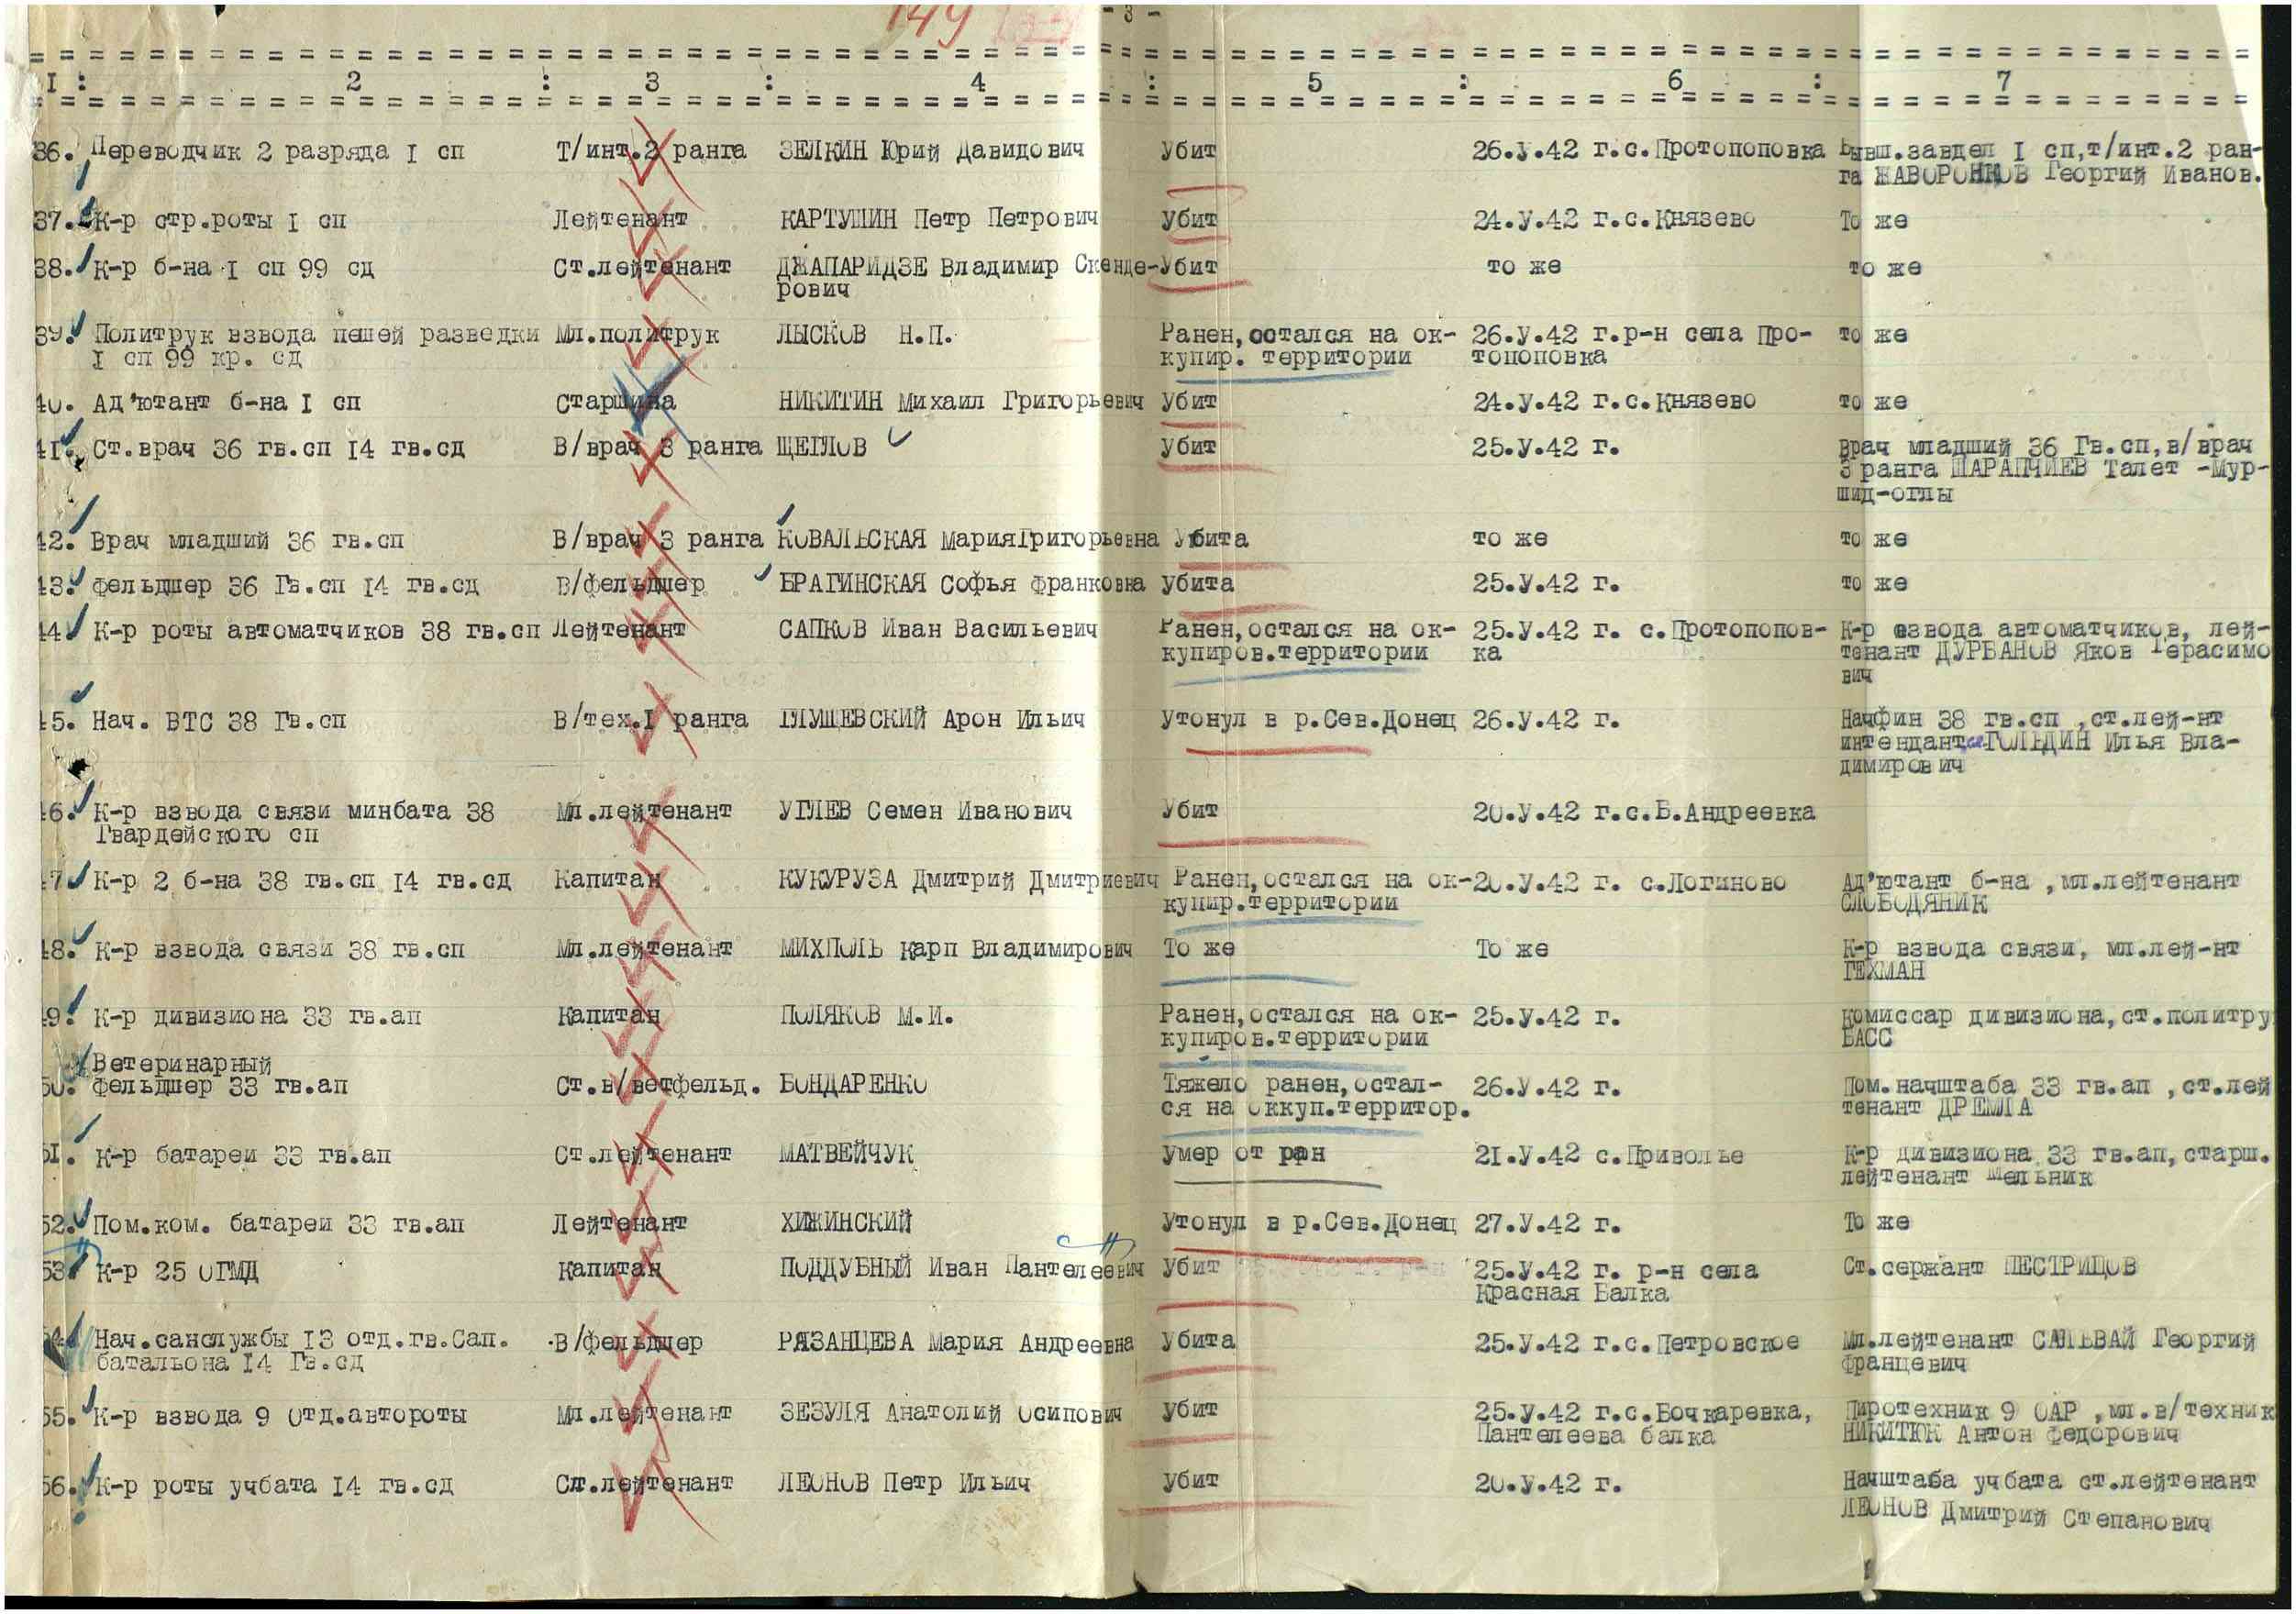 149
- 3 -
1 : 2 : 3 : 4 : 5 : 6 : 7
36. Переводчик 2 разряда I сп Т/инт.2 ранга ЗЕЛКИН Юрий Давидович Убит 26.У.42 г.с.Протопоповка Бывш.завдел I сп,т/инт.2 ран-
га ЖАВОРОНКОВ Георгий Иванов.
37. К-р стр.роты I сп Лейтенант КАРТУШИН Петр Петрович Убит 24.У.42 г.с.Князево То же
38. К-р б-на I сп 99 сд Ст.лейтенант ДЖАПАРИДЗЕ Владимир Сkенде- Убит то же то же
рович
39. Политрук взвода пешей разведки Мл.политрук ЛЫСКОВ Н.П. Ранен,остался на ок- 26.У.42 г.р-н села Про- то же
I сп 99 кр. сд купир. территории топоповка
40. Ад'ютант б-на I сп Старшина НИКИТИН Михаил Григорьевич Убит 24.У.42 г.с.Князево то же
41. Ст.врач 36 гв.сп 14 гв.сд В/врач 3 ранга ЩЕГЛОВ Убит 25.У.42 г. Врач младший 36 Гв.сп,в/врач
3 ранга ШАРАПЧИЕВ Талет -Мур-
шид-оглы
42. Врач младший 36 гв.сп В/врач 3 ранга КОВАЛЬСКАЯ МарияГригорьевна Убита то же то же
43. фельдшер 36 Гв.сп 14 гв.сд В/фельдшер БРАГИНСКАЯ Софья Франковна Убита 25.У.42 г. то же
44. К-р роты автоматчиков 38 гв.сп Лейтенант САПКОВ Иван Васильевич Ранен,остался на ок- 25.У.42 г. с.Протопопов- К-р взвода автоматчиков, лей-
купиров.территории ка тенант ДУРБАНОВ Яков Герасимо
вич
45. Нач. ВТС 38 Гв.сп В/тех.I ранга ГЛУЩЕВСКИЙ Арон Ильич Утонул в р.Сев.Донец 26.У.42 г. Начфин 38 гв.сп ,ст.лей-нт
интендант.сл ГОЛЬДИН Илья Вла-
димирович
46. К-р взвода связи минбата 38 Мл.лейтенант УГЛЕВ Семен Иванович Убит 20.У.42 г.с.Б.Андреевка
Гвардейского сп
47. К-р 2 б-на 38 гв.сп 14 гв.сд Капитан КУКУРУЗА Дмитрий Дмитриевич Ранен,остался на ок- 20.У.42 г. с.Логиново Ад'ютант б-на ,мл.лейтенант
купир.территории СЛОБОДЯНИК
48. К-р взвода связи 38 гв.сп Мл.лейтенант МИХПОЛЬ Карп Владимирович То же То же К-р взвода связи, мл.лей-нт
ГЕХМАН
49. К-р дивизиона 33 гв.ап Капитан ПОЛЯКОВ М.И. Ранен,остался на ок- 25.У.42 г. Комиссар дивизиона,ст.политру
купиров.территории БАСС
Ветеринарный
50. фельдшер 33 гв.ап Ст.в/ветфельд. БОНДАРЕНКО Тяжело ранен,остал- 26.У.42 г. Пом.начштаба 33 гв.ап ,ст.лей
ся на оккуп.территор. тенант ДРЕМЛА
51. К-р батареи 33 гв.ап Ст.лейтенант МАТВЕЙЧУК Умер от ран 21.У.42 с.Приволье К-р дивизиона 33 гв.ап,старш.
лейтенант Мельник
52. Пом.ком. батареи 33 гв.ап Лейтенант ХИЖИНСКИЙ Утонул в р.Сев.Донец 27.У.42 г. То же
53. К-р 25 ОГМД Капитан ПОДДУБНЫЙ Иван Пантелеевич Убит 25.У.42 г. р-н села Ст.сержант ПЕСТРИЦОВ
Красная Балка
54. Нач.санслужбы 13 отд.гв.Сап. В/фельдшер РЯЗАНЦЕВА Мария Андреевна Убита 25.У.42 г.с.Петровское Мл.лейтенант САЛЬВАЙ Георгий
батальона 14 Гв.сд Францевич
55. К-р взвода 9 Отд.автороты Мл.лейтенант ЗЕЗУЛЯ Анатолий Осипович Убит 25.У.42 г.с.Бочкаревка, Пиротехник 9 ОАР ,мл.в/техник
Пантелеева балка НИКИТЮК Антон Федорович
56. К-р роты учбата 14 гв.сд Ст.лейтенант ЛЕОНОВ Петр Ильич Убит 20.У.42 г. Начштаба учбата ст.лейтенант
ЛЕОНОВ Дмитрий Степанович